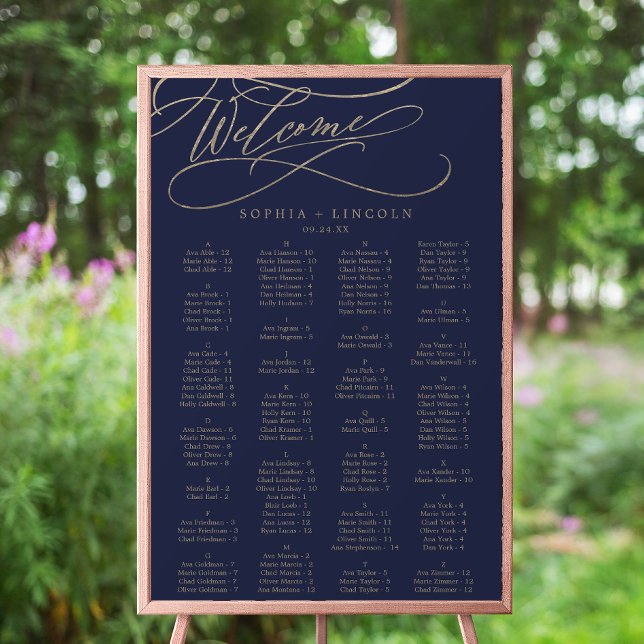 Welcome
SOPHIA + LINCOLN
09.24.XX
A
Ava Able - 12
Marie Able - 12
Chad Able - 12
B
Ava Brock - 1
Marie Brock- 1
Chad Brock - 1
Oliver Brock - 1
Ana Brock - 1
C
Ava Cade - 4
Marie Cade - 4
Chad Cade - 11
Oliver Cade- 11
Ana Caldwell - 8
Dan Caldwell - 8
Holly Caldwell - 8
D
Ava Dawson - 6
Marie Dawson - 6
Chad Drew - 8
Oliver Drew - 8
Ana Drew - 8
E
Marie Earl - 2
Chad Earl - 2
F
Ava Friedman - 3
Marie Friedman - 3
Chad Friedman - 3
G
Ava Goldman - 7
Marie Goldman - 7
Chad Goldman - 7
Oliver Goldman - 7
H
Ava Hanson - 10
Marie Hanson - 10
Chad Hanson - 1
Oliver Hanson - 1
Ana Heilman - 4
Dan Heilman - 4
Holly Hudson - 7
I
Ava Ingram - 5
Marie Ingram - 5
J
Ava Jordan - 12
Marie Jordan - 12
K
Ava Kern - 10
Marie Kern - 10
Holly Kern - 10
Ryan Kern - 10
Chad Kramer - 1
Oliver Kramer - 1
L
Ava Lindsay - 8
Marie Lindsay - 8
Chad Lindsay - 10
Oliver Lindsay - 10
Ana Loeb - 1
Blair Loeb - 1
Dan Lucas - 12
Ana Lucas - 12
Ryan Lucas - 12
M
Ava Marcia - 2
Marie Marcia - 2
Chad Marcia - 2
Oliver Marcia - 2
Ana Montana - 12
N
Ava Nassau - 4
Marie Nassau - 4
Chad Nelson - 9
Oliver Nelson - 9
Ana Nelson - 9
Dan Nelson - 9
Holly Norris - 16
Ryan Norris - 16
O
Ava Oswald - 3
Marie Oswald - 3
P
Ava Park - 9
Marie Park - 9
Chad Pitcairn - 11
Oliver Pitcairn - 11
Q
Ava Quill - 5
Marie Quill - 5
R
Ava Rose - 2
Marie Rose - 2
Chad Rose - 2
Holly Rose - 2
Ryan Roslyn - 7
S
Ava Smith - 11
Marie Smith - 11
Chad Smith - 11
Oliver Smith - 11
Ana Stephenson - 14
T
Ava Taylor - 5
Marie Taylor - 5
Chad Taylor - 5
Karen Taylor - 5
Dan Taylor - 9
Ryan Taylor - 9
Oliver Taylor - 9
Ana Taylor - 9
Dan Thomas - 13
U
Ava Ulman - 5
Marie Ulman - 5
V
Ava Vance - 11
Marie Vance - 11
Dan Vanderwall - 16
W
Ava Wilson - 4
Marie Wilson - 4
Chad Wilson - 4
Oliver Wilson - 4
Ana Wilson - 5
Dan Wilson - 5
Holly Wilson - 5
Ryan Wilson - 5
X
Ava Xander - 10
Marie Xander - 10
Y
Ava York - 4
Marie York - 4
Chad York - 4
Oliver York - 4
Ana York - 4
Dan York - 4
Z
Ava Zimmer - 12
Marie Zimmer - 12
Chad Zimmer - 12